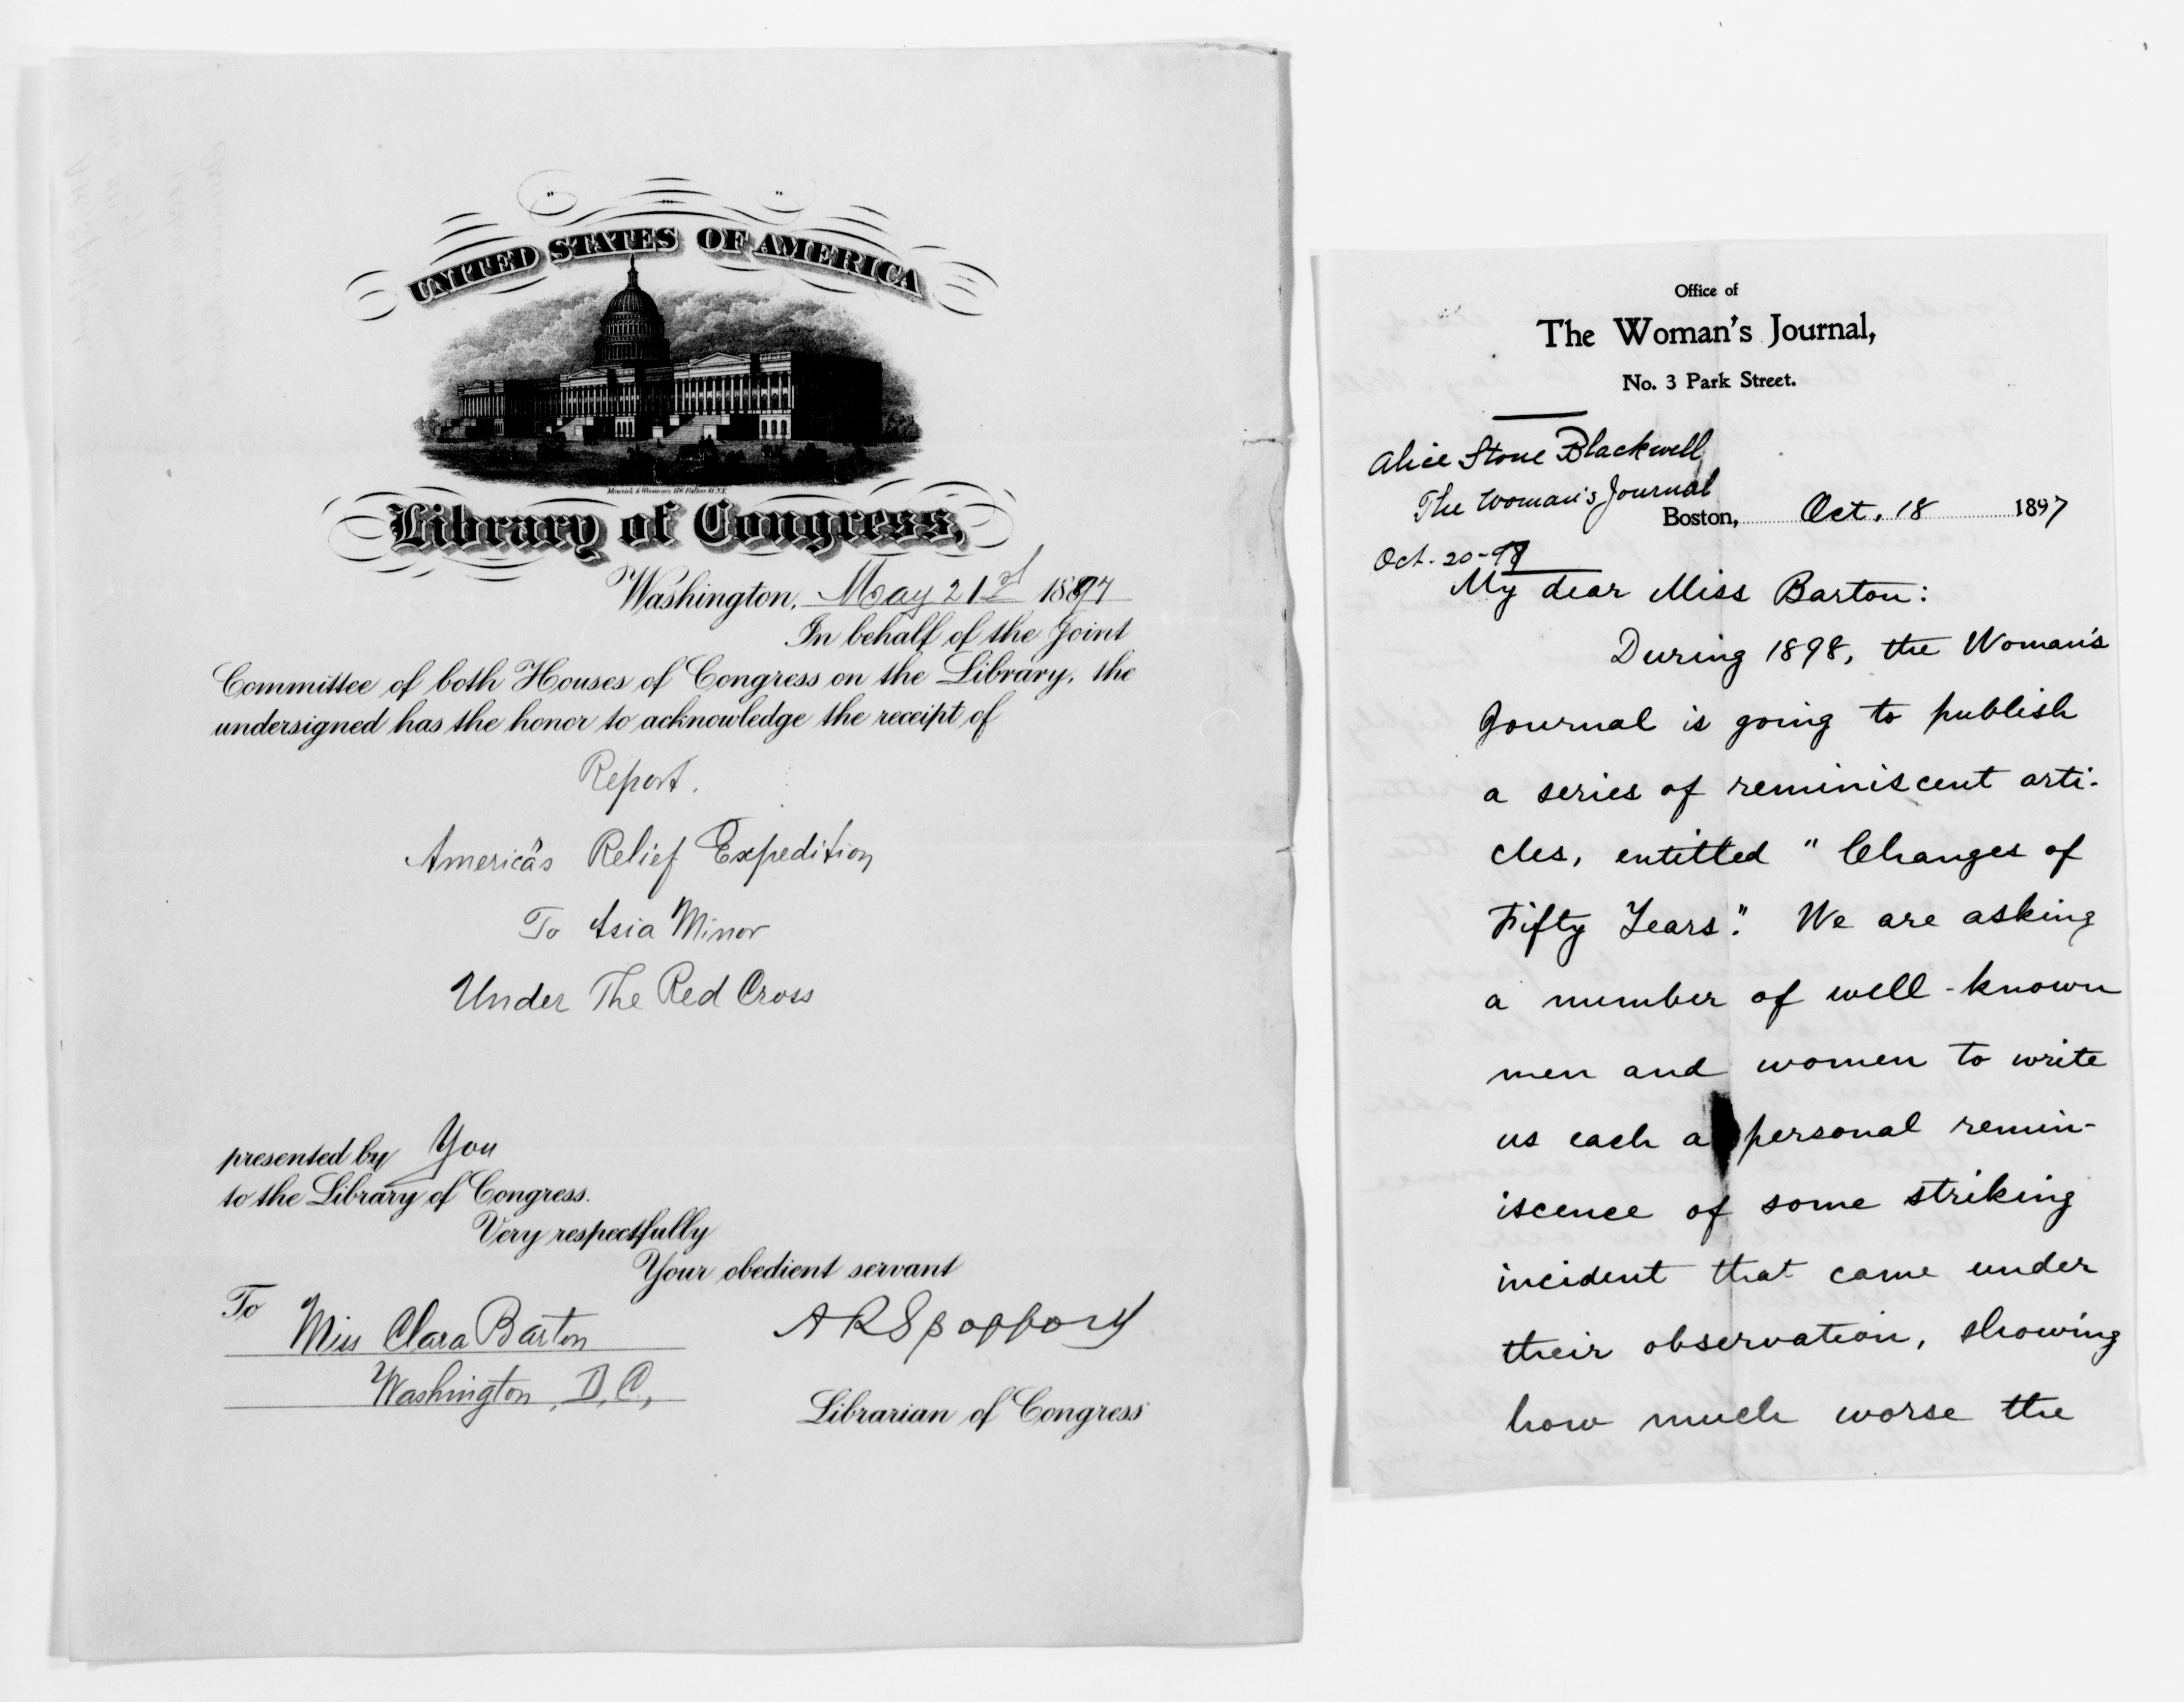 UNITED STATES OF AMERICA
Library of Congress,
Washington, May 21st 1897
In behalf of the Joint
Committee of both Houses of Congress on the Library, the
undersigned has the honor to acknowledge the receipt of
Report.
America's Relief Expedition
To Asia Minor
Under The Red Cross
presented by You
to the Library of Congress.
Very respectfully
Your obedient servant
To Miss Clara Barton
Washington, D.C.,
A R Spofford
Librarian of Congress
Office of
The Woman's Journal,
No. 3 Park Street.
Alice Stone Blackwell
The Woman's Journal
Boston, Oct. 18 1897
Oct. 20-97
My dear Miss Barton:
During 1898, the Woman's
Journal is going to publish
a series of reminiscent arti-
cles, entitled "Changes of
Fifty Years". We are asking
a number of well-known
men and women to write
us each a personal remin-
iscence of some striking
incident that came under
their observation, showing
how much worse the